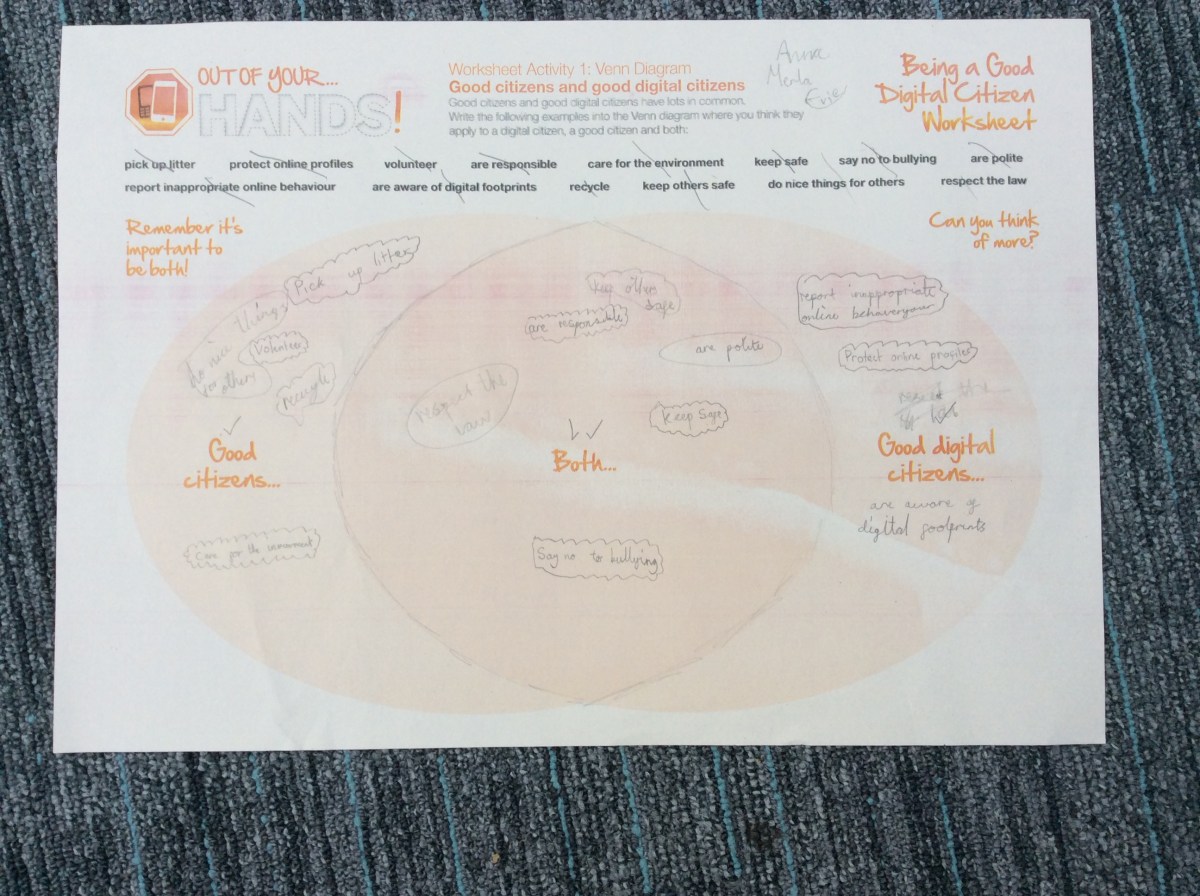 OUT OF YOUR...
HANDS!
Worksheet Activity 1: Venn Diagram
Good citizens and good digital citizens
Good citizens and good digital citizens have lots in common.
Write the following examples into the Venn diagram where you think they
apply to a digital citizen, a good citizen and both:
Anna
Evie
Being a Good
Digital Citizen
Worksheet
pick up litter protect online profiles volunteer are responsible care for the environment keep safe say no to bullying are polite
report inappropriate online behaviour are aware of digital footprints recycle keep others safe do nice things for others respect the law
Remember it's
important to
be both!
Can you think
of more?
Pick up litter
do nice things
for others
volunteer
recycle
Good
citizens...
Care for the
keep others
safe
are responsible
are polite
respect the
law
keep safe
Both...
Say no to bullying
report inappropriate
online behaveryour
Protect online profiles
Good digital
citizens...
are aware of
digital footprints